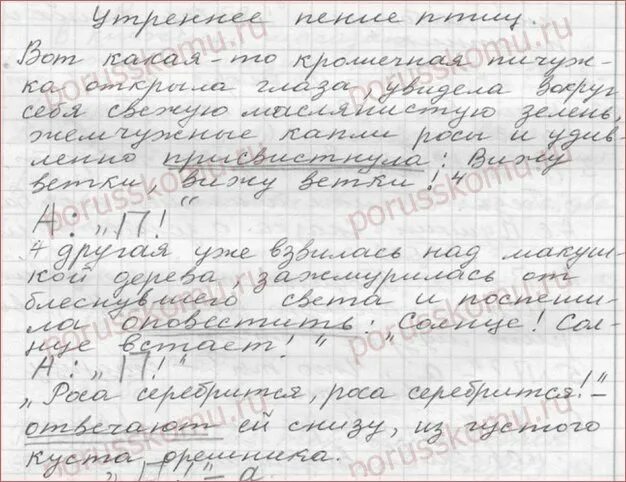 Утреннее пение птиц.
Вот какая-то крошечная пичуж-
ка открыла глаза, увидела вокруг
себя свежую маслянистую зелень,
жемчужные капли росы и удив-
ленно присвистнула: Вижу
ветки, вижу ветки!"
А: „П!"
А другая уже взвилась над макуш-
кой дерева, зажмурилась от
блеснувшего света и поспеши-
ла оповестить: „Солнце! Сол-
нце встает!"
А: „П!"
„Роса серебрится, роса серебрится!"-
отвечают ей снизу, из густого
куста орешника.
„П!" - а.
porusskomu.ru